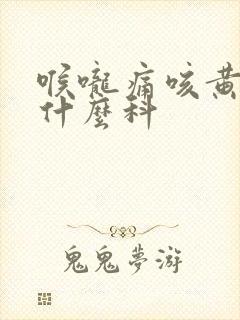 喉嚨痛咳黃
什麼科
鬼鬼夢游